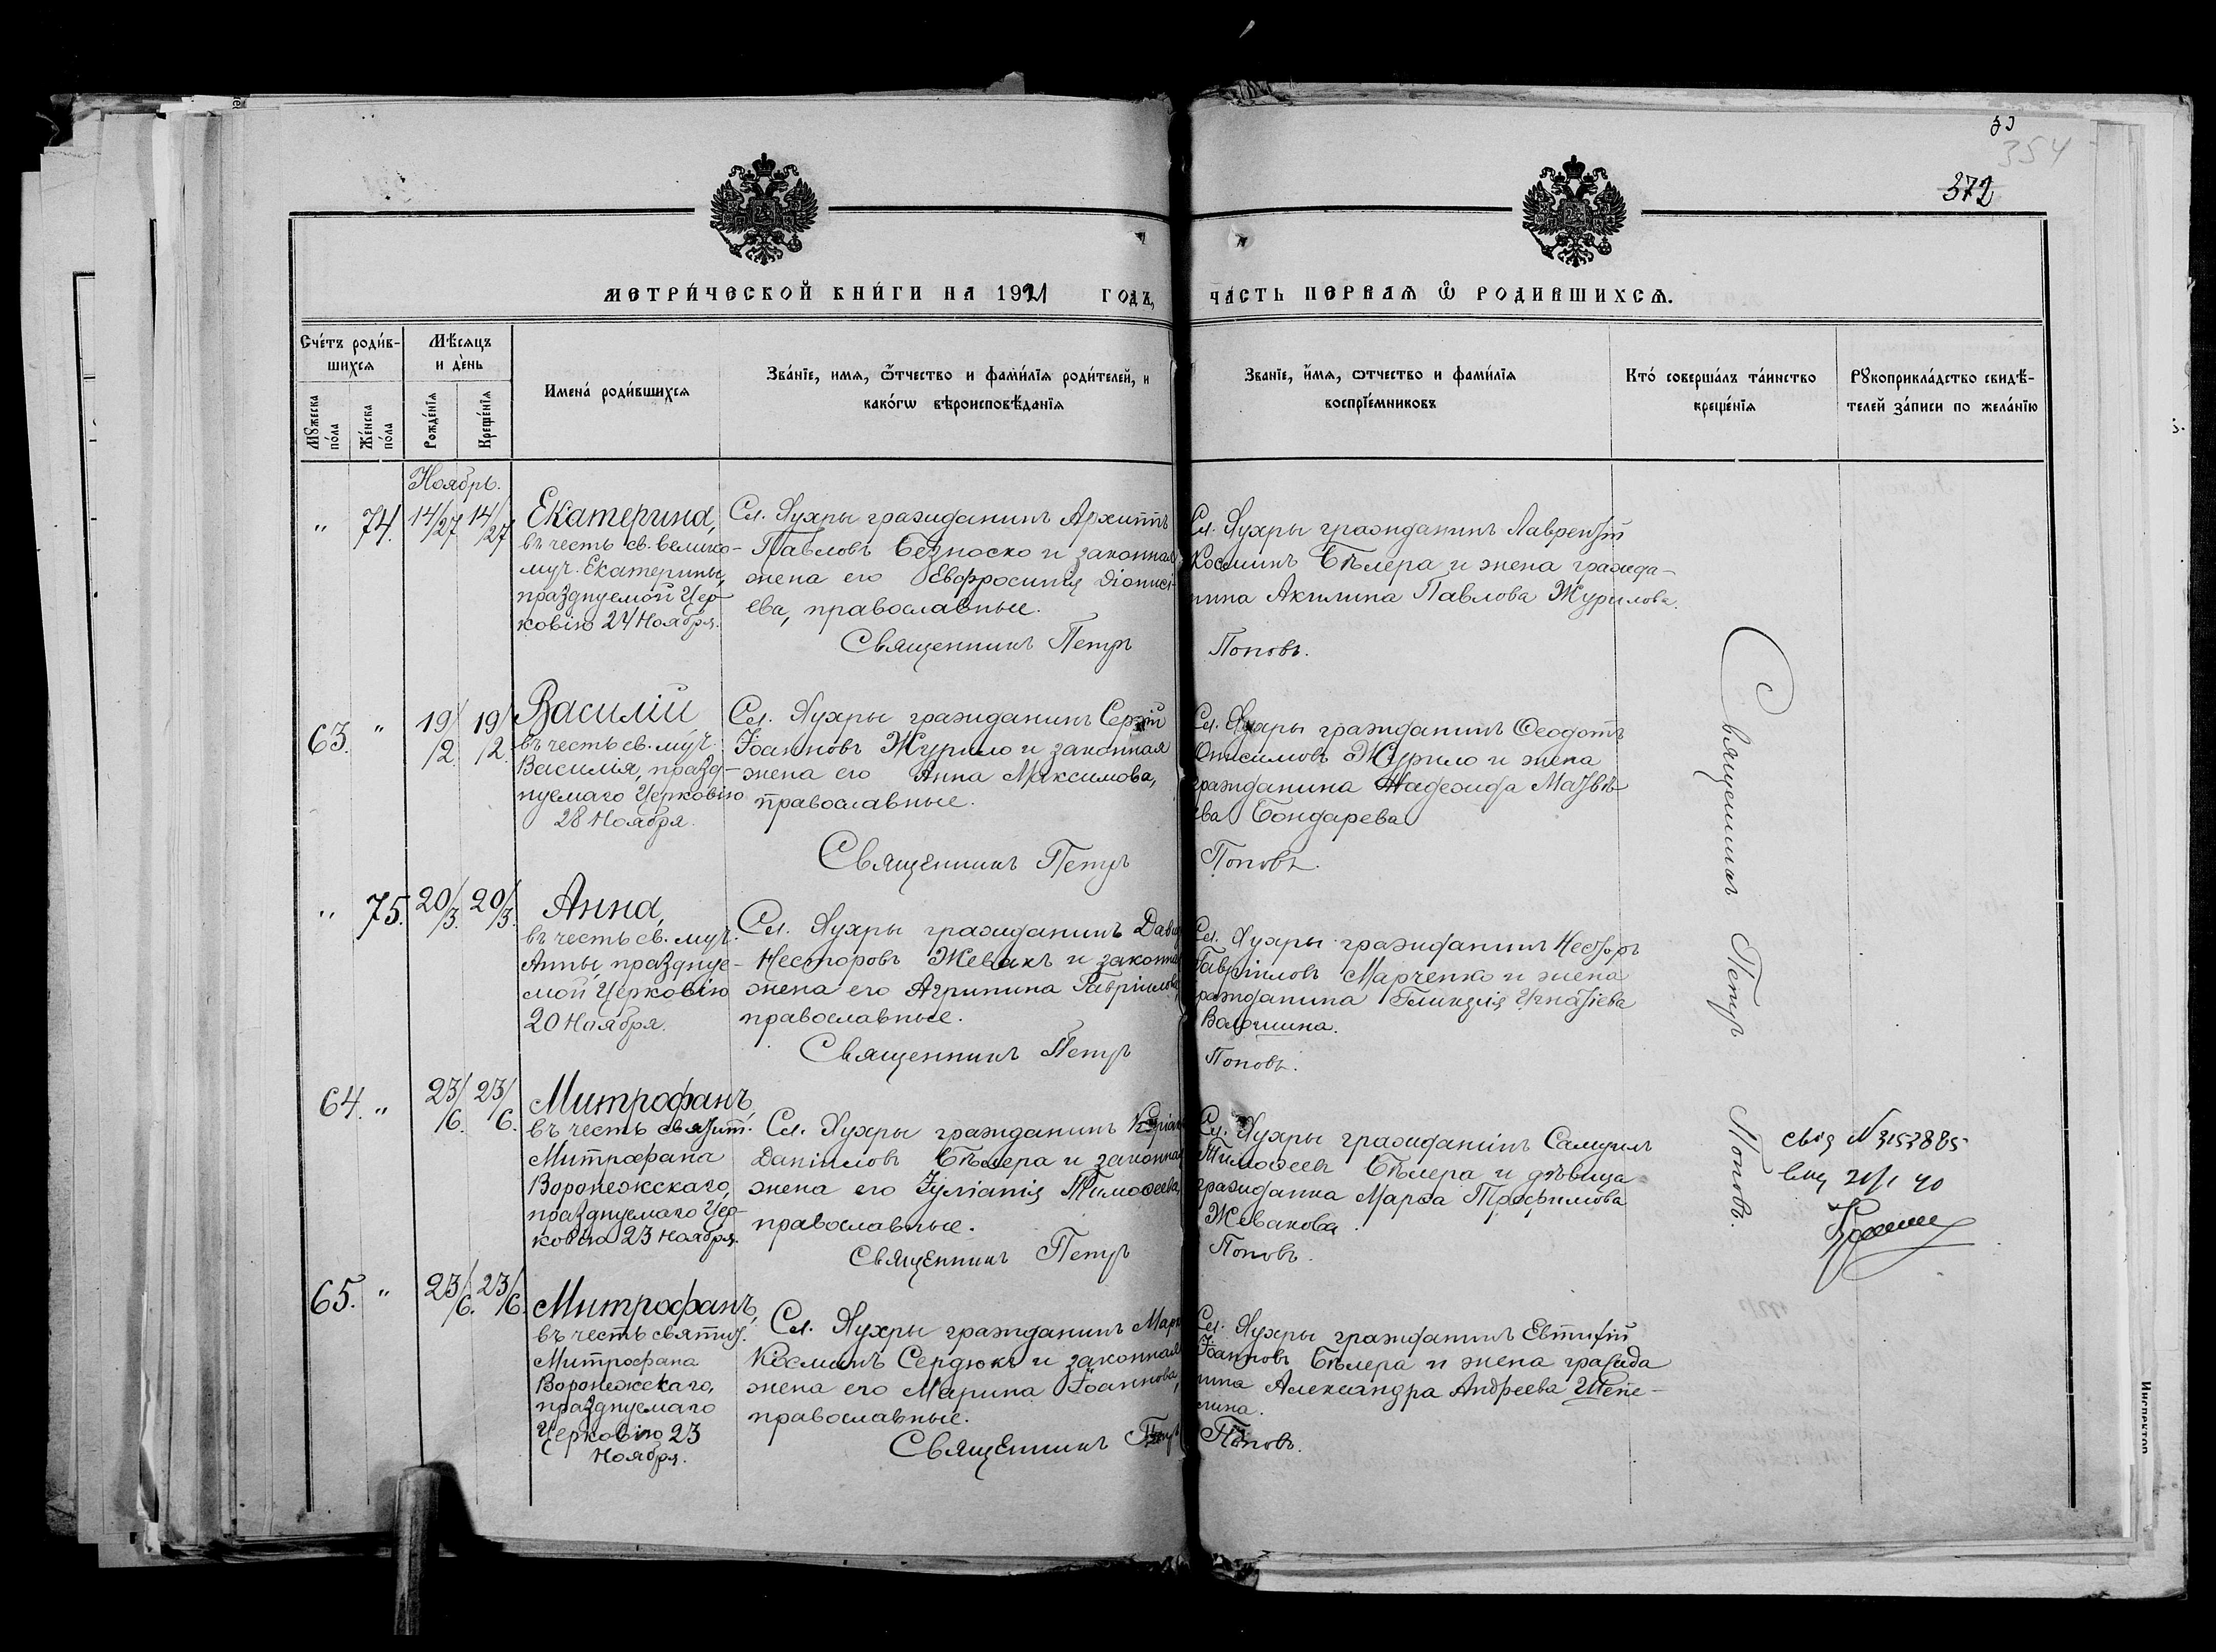 354
372
МЕТРИЧЕСКОЙ КНИГИ НА 1921 ГОДЪ,
ЧАСТЬ ПЕРВАЯ Ѿ РОДИВШИХСЯ.
Счетъ родив-
шихся
Мужеска
пола
Женска
пола
Мѣсяцъ
и день
Рожденія
Крещенія
Имена родившихся
Званіе, имя, ѿтчество и фамилія родителей, и
какогѡ вѣроисповѣданія
Званіе, имя, отчество и фамилія
воспріемниковъ
Кто совершалъ таинство
крещенія
Рукоприкладство свидѣ-
телей записи по желанію
Ноябрь.
" 74. 14/27 14/27
Екатерина,
въ честь св. велико-
муч. Екатерины,
празднуемой Цер-
ковію 24 Ноября.
Сл. Лухры гражданинъ Архиппъ
Павловъ Безноско и законная
жена его Евфросинія Діонисі-
ева, православные.
Священникъ Петръ
Сл. Лухры гражданинъ Лаврентій
Косминъ Бѣлера и жена гражда-
нина Акилина Павлова Журилова.
Поповъ.
63. " 19/2. 19/2.
Василій
въ честь св. муч.
Василія, празд-
нуемаго Церковію
28 Ноября.
Сл. Лухры гражданинъ Сергій
Іоанновъ Журило и законная
жена его Анна Максимова,
православные.
Священникъ Петръ
Сл. Лухры гражданинъ Ѳеодотъ
Онисимовъ Журило и жена
гражданина Надежда Матвѣ-
ева Бондарева
Поповъ.
" 75. 20/3. 20/3.
Анна,
въ честь св. муч.
Анны, праздну-
мой Церковію
20 Ноября.
Сл. Лухры гражданинъ Давид
Несторовъ Жевакъ и законная
жена его Агрипина Гавріилова,
православные.
Священникъ Петръ
Сл. Лухры гражданинъ Несторъ
Гавріиловъ Марченко и жена
гражданина Гликерія Игнатіева
Волошина.
Поповъ.
64. " 23/6. 23/6.
Митрофанъ,
въ честь святит.
Митрофана
Воронежскаго,
празднуемаго Цер-
ковію 23 Ноября.
Сл. Лухры гражданинъ
Даніиловъ Бѣлера и законная
жена его Іуліанія Тимоѳеева,
православные.
Священникъ Петръ
Сл. Лухры гражданинъ Самуилъ
Тимоѳеевъ Бѣлера и дѣвица
гражданка Марѳа Трофимова
Жевакова.
Поповъ.
65. " 23/6. 23/6.
Митрофанъ,
въ честь святит.
Митрофана
Воронежскаго,
празднуемаго
Церковію 23
Ноября.
Сл. Лухры гражданинъ Маркъ
Косминъ Сердюкъ и законная
жена его Марина Іоаннова,
православные.
Священникъ Петръ
Сл. Лухры гражданинъ Евтихій
Іоанновъ Бѣлера и жена гражда
нина Александра Андреева Шепе-
Поповъ.
Священникъ Петръ Поповъ.
Инспектор